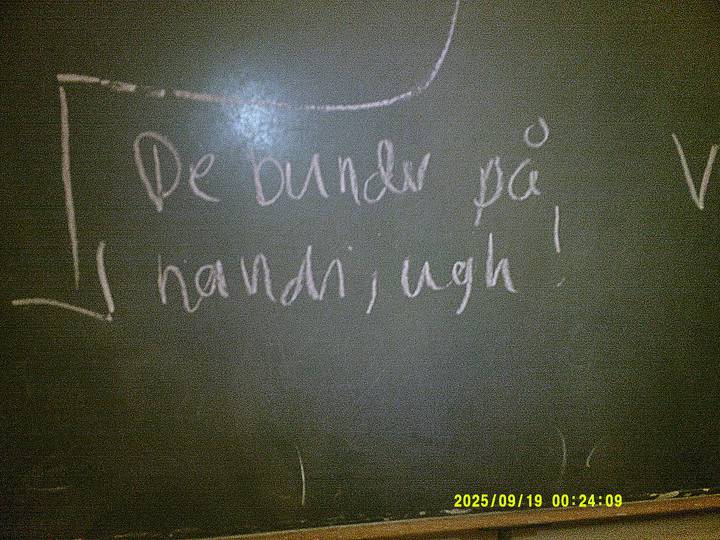 De bunder på
handi, ugh!
V
2025/09/19 00:24:09